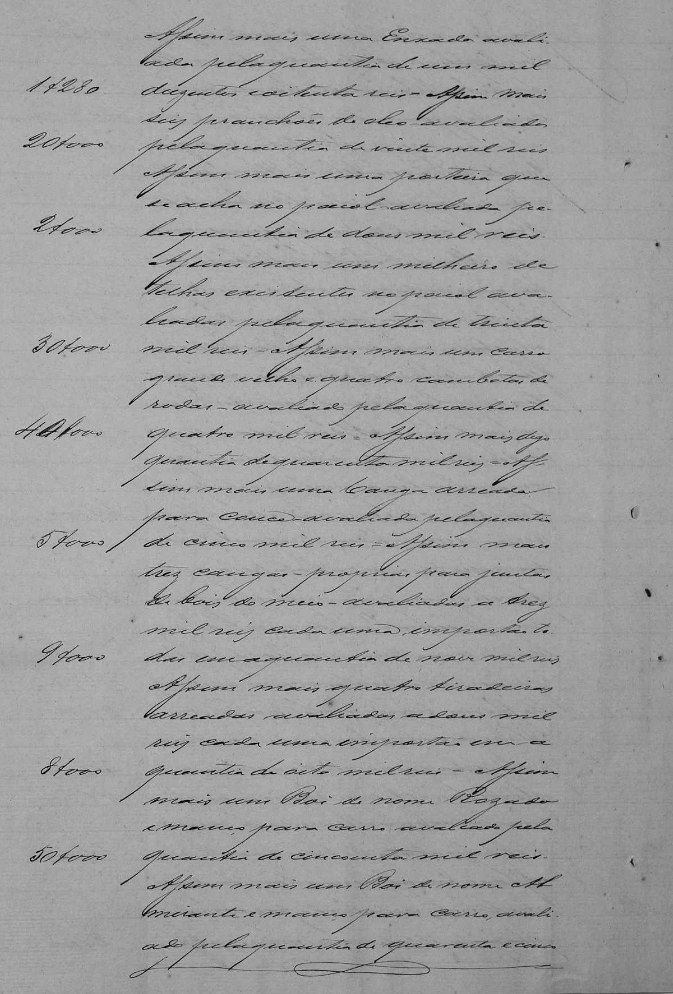 Assim mais uma Enxada avali-
ada pelaquantia de um mil
1$280 duzentos e oitenta reis – Assim mais
seis pranchões de oleo avaliados
20$000 pelaquantia de vinte mil reis
Assim mais uma porteira que
se acha no paiol avaliada pe-
2$000 laquantia de dous mil reis.
Assim mais um milheiro de
telhas existentes no paiol ava-
liadas pelaquantia de trinta
30$000 mil reis – Assim mais um carro
grande velho e quatro cambotas de
rodas – avaliado pelaquantia de
40$000 quatro mil reis – Assim mais digo
quantia de quarenta mil reis – As-
sim mais uma Canga arreada
para avaliada pelaquantia
5$000 de cinco mil reis – Assim mais
trez cangas – proprias para juntas
de bois do meio – avaliadas a trez
mil reis cada uma, importa to-
9$000 das em aquantia de nove mil reis
Assim mais quatro tiradeiras
arreadas avaliadas a dous mil
reis cada uma importao em a
8$000 quantia de oito mil reis – Assim
mais um Boi de nome Rozado
e manso para carro avaliado pela
50$000 quantia de cincoenta mil reis.
Assim mais um Boi de nome Al
mirante e manso para carro, avali-
ado pelaquantia de quarenta e cinco